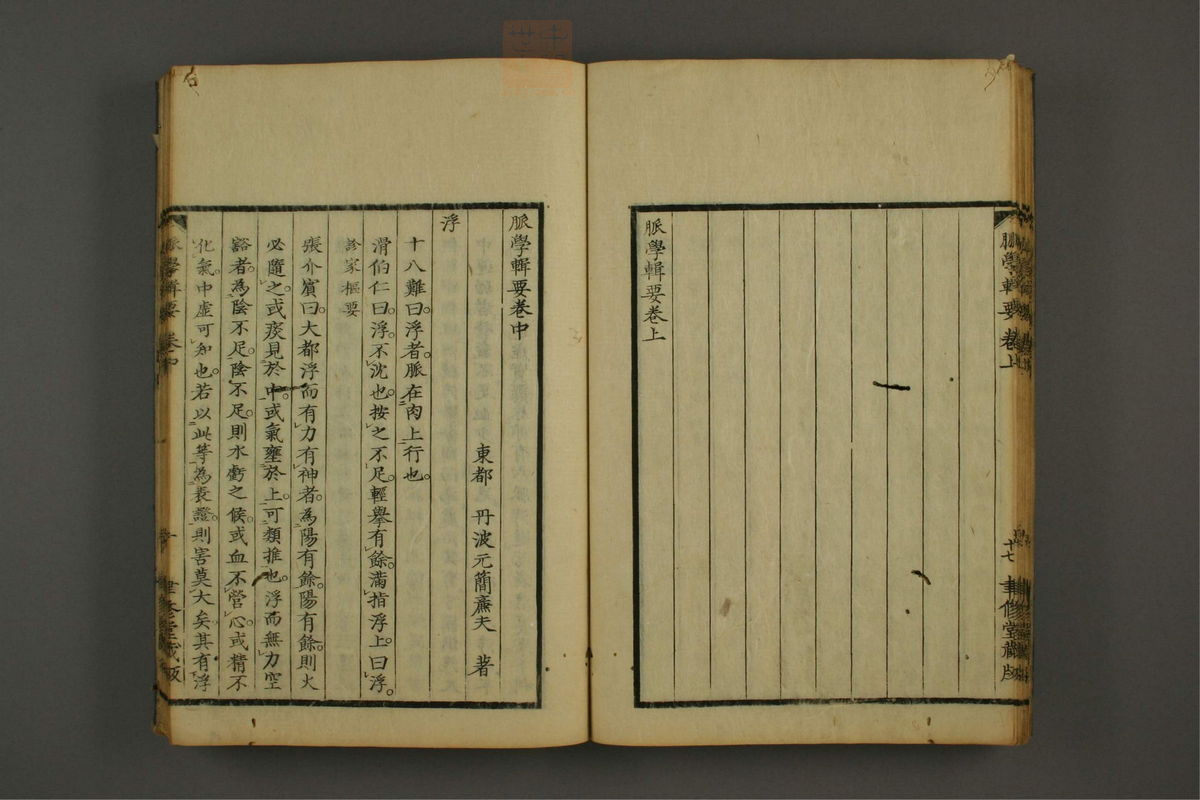 脈學輯要卷上
十七
聿修堂藏版
脈學輯要卷上
脈學輯要卷中
東都 丹波元簡廉夫 著
浮
十八難曰。浮者。脈在肉上行也。
滑伯仁曰。浮。不沈也。按之不足。輕擧有餘。滿指浮上。曰浮。
診家樞要
張介賓曰。大都浮而有力有神者。為陽有餘。陽有餘。則火
必隨之。或痰見於中。或氣壅於上。可類推也。浮而無力空
豁者。為陰不足。陰不足。則水虧之候。或血不營心。或精不
化氣。中虛可知也。若以此等為表證。則害莫大矣。其有浮